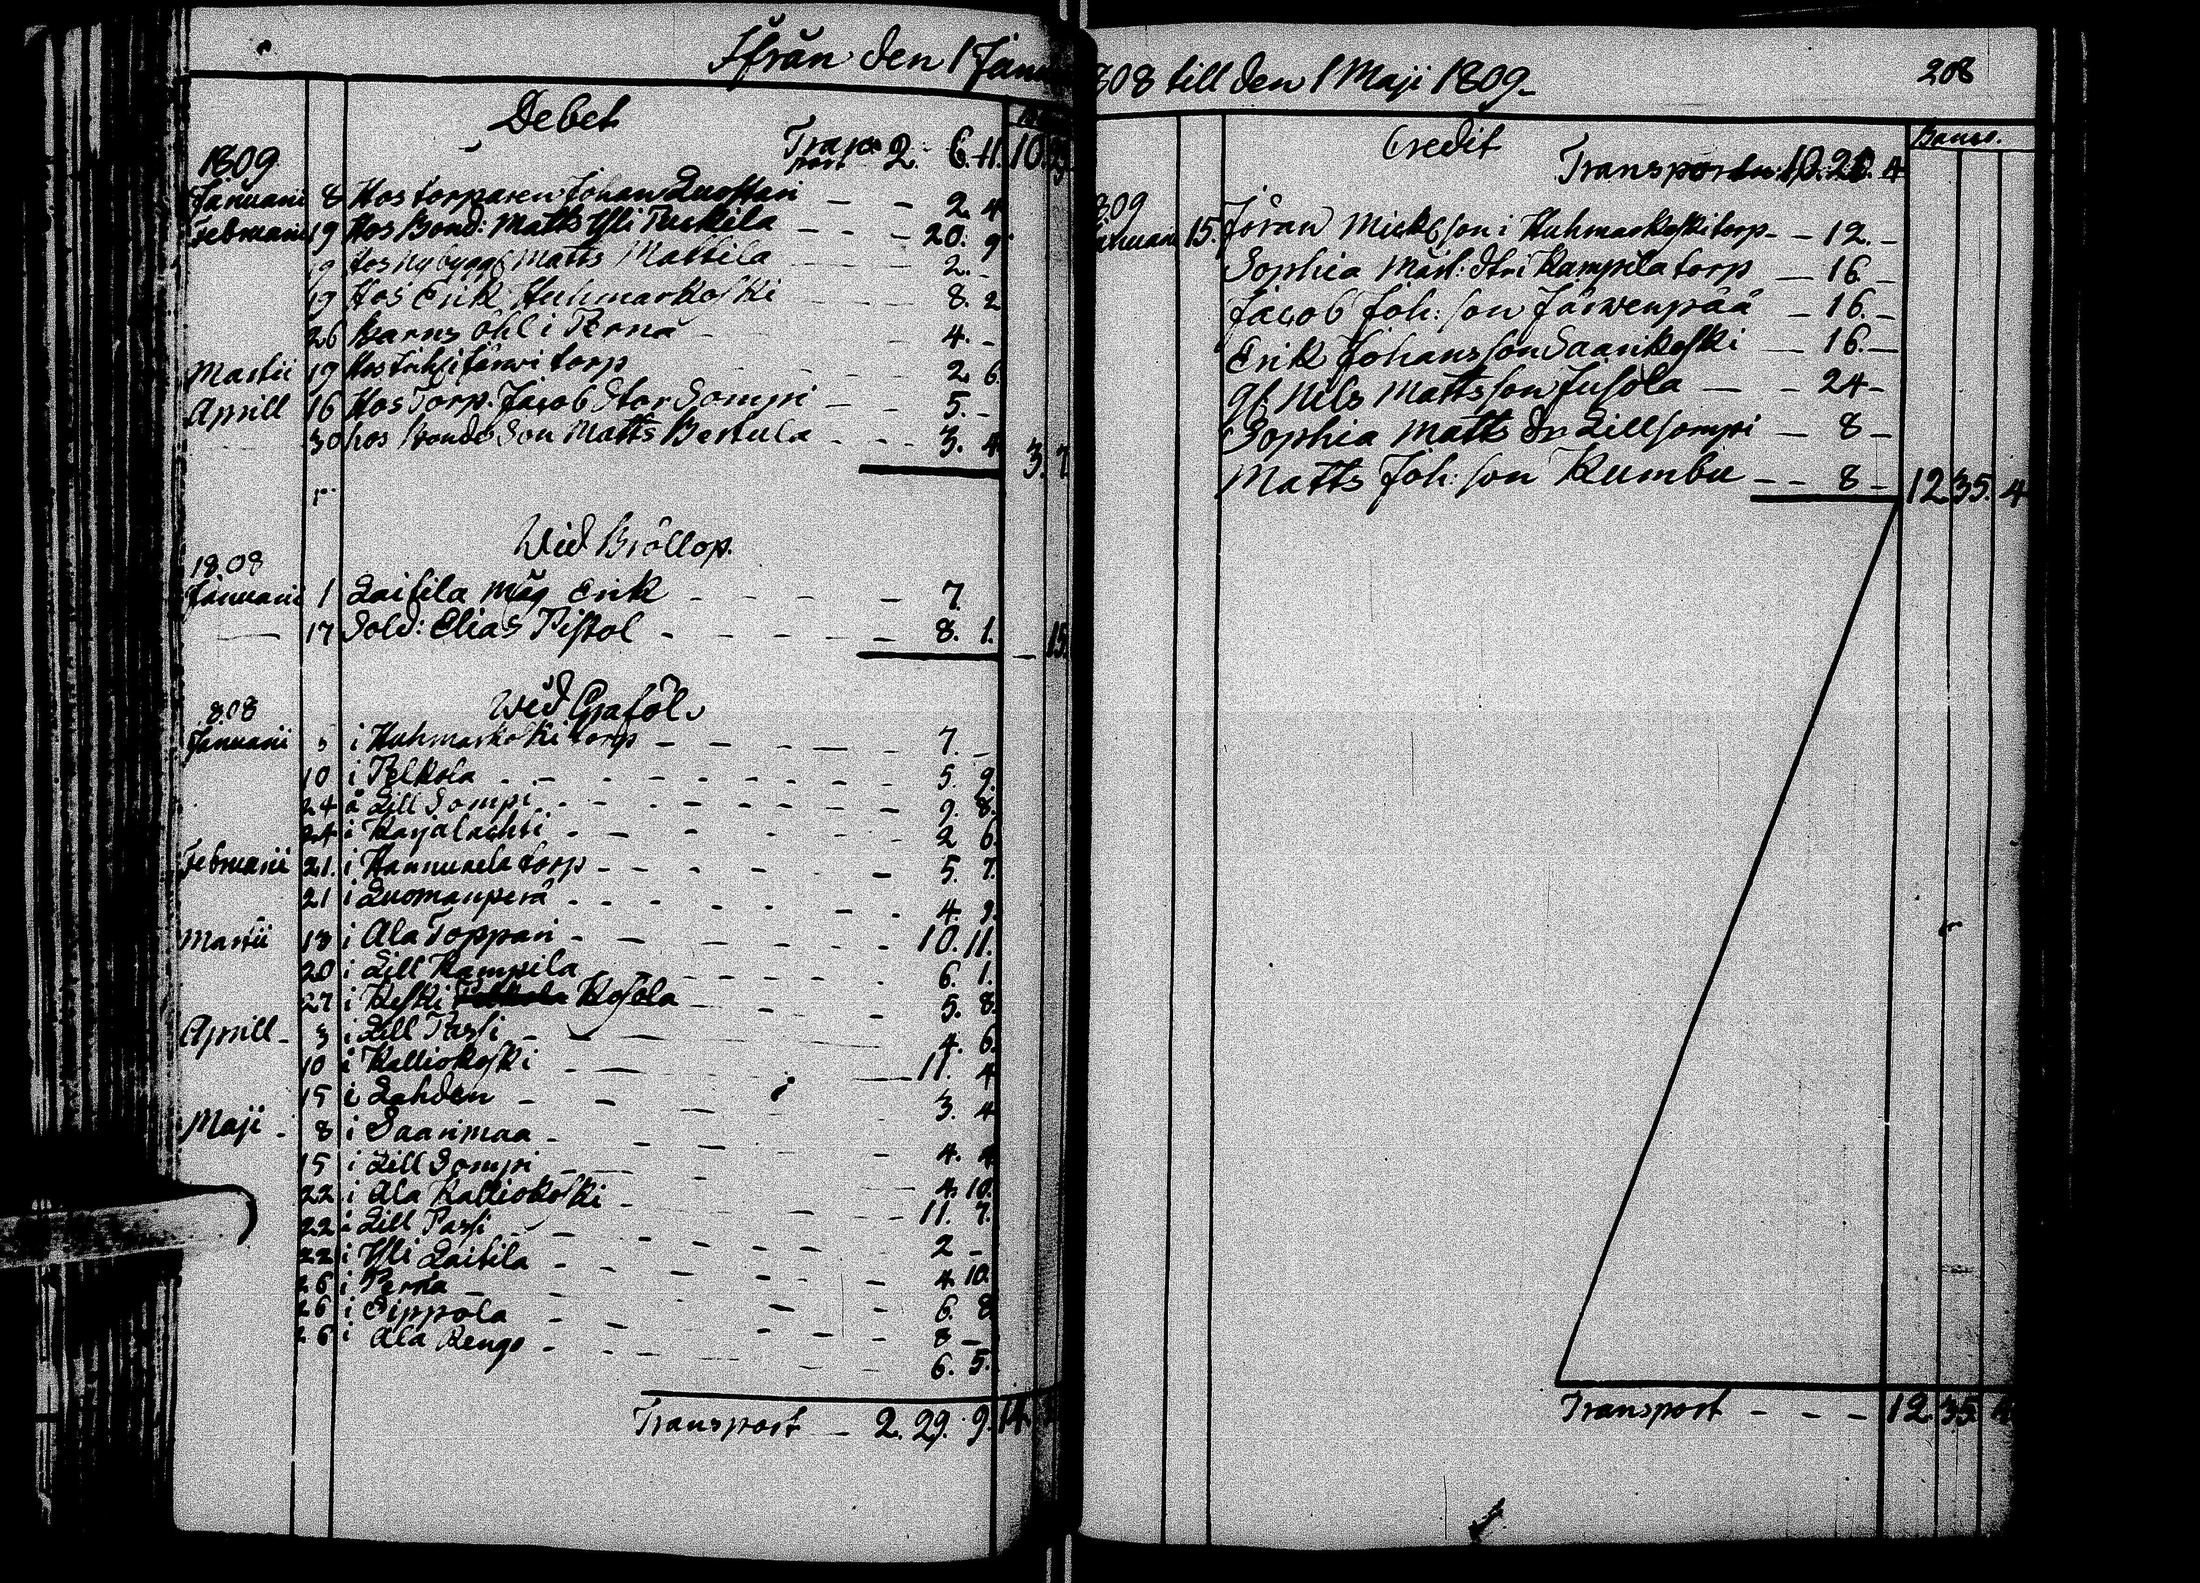 Ifrån den 1 Janu
Debet
Trans
port 2. 6. 11. 10.
1809
Januarii 8 Hos torparen Johan Luostari - - 2. 4
Februarii 19 Hos Bond: Matts Yli Puskila - - - 20. 9
19 Hos Nybygg: Matts Mattila - - - 2. -
19 Hos Erik Huhmarkoski - - - 8. 2
26 Barns öhl i Perna - 4. -
Martii 19 torp - - - 2. 6.
Aprill 16 Hos Torp. Jacob Stor Sompi - - 5. -
30 hos Bonde Son Matts Bertula - - - 3. 4 3. 7
Wid Bröllop.
1808
Januarii 1 Laitila Måg Erik - - - - 7.
17 Sold: Elias Pistol - - - - - 8. 1. - 15.
Wid Graföl
808
Januarii 3 i Huhmarkoski torp - - - - - 7. -
10 i Pelkola - - - - - - - 5. 9.
24 å Lill Sompi - - - - - - - 9. 8.
24 i Karjalachti - - - - - 2 6.
Februarii 21. i Hannukela torp - - - - - 5. 7.
21 i Luomanperä - - - - - - 4. 9.
Martii 18 i Ala Toppari - - - - - - 10. 11.
20 i Lill Kampila - - - - - 6. 1.
27 i Keski Kosola - - - - 5. 8.
Aprill - 3 i Lill Passi - - - 4. 6.
10 i Kalliokoski - - - 11. 4
15 i Lahden - - - - - 3. 4
Maji - 8 i Saarimaa - - - - - 4. 4
15 i Lill Sompi - - - - - 4. 10.
22 i Ala Kalliokoski - - - - 11. 7.
22 i Lill Passi - - - - - 2 -
22 i Yli Laitila - - - - - 4. 10.
26 i Perna - - - - 6. 8
26 i Sippola - - - - - 8 -
26 i Ala Rengo - - - - - 6. 5.
Transport - 2. 29. 9. 14.
808 till den 1 Maji 1809.
208
Credit
Banco.
Transporter 10. 20. 4
809
Januari 15. Jöran Mickelson i Huhmarkoski torp - - 12. -
Sophia Mårt: dtr i Kampila torp - 16. -
Jacob Joh: son Järwenpää - 16. -
Erik Johansson Saarikoski - 16. -
Gl. Nils Mattsson Jusola - - 24 -
Sophia Matts dr Lillsompi - 8 -
Matts Joh: son Rumbu - - 8 - 12 35. 4
Transport - - - 12. 35. 4